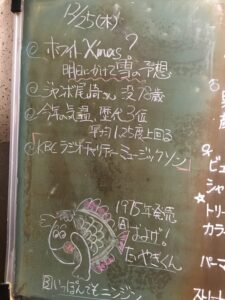 12/25(木)
◎ホワイトXmas?
明日にかけて雪の予想
◎ジャンボ尾崎さん 没78歳
◎今年の気温、歴代3位
平均1.25度上回る
◎「KBCラジオチャリティーミュージックソン」
1975年発売
Ⓐおよげ!
たいやきくん
Ⓑいっぽんでもニンジン
ビュ
シャ
トリー
カラー
パーマ
ストレート